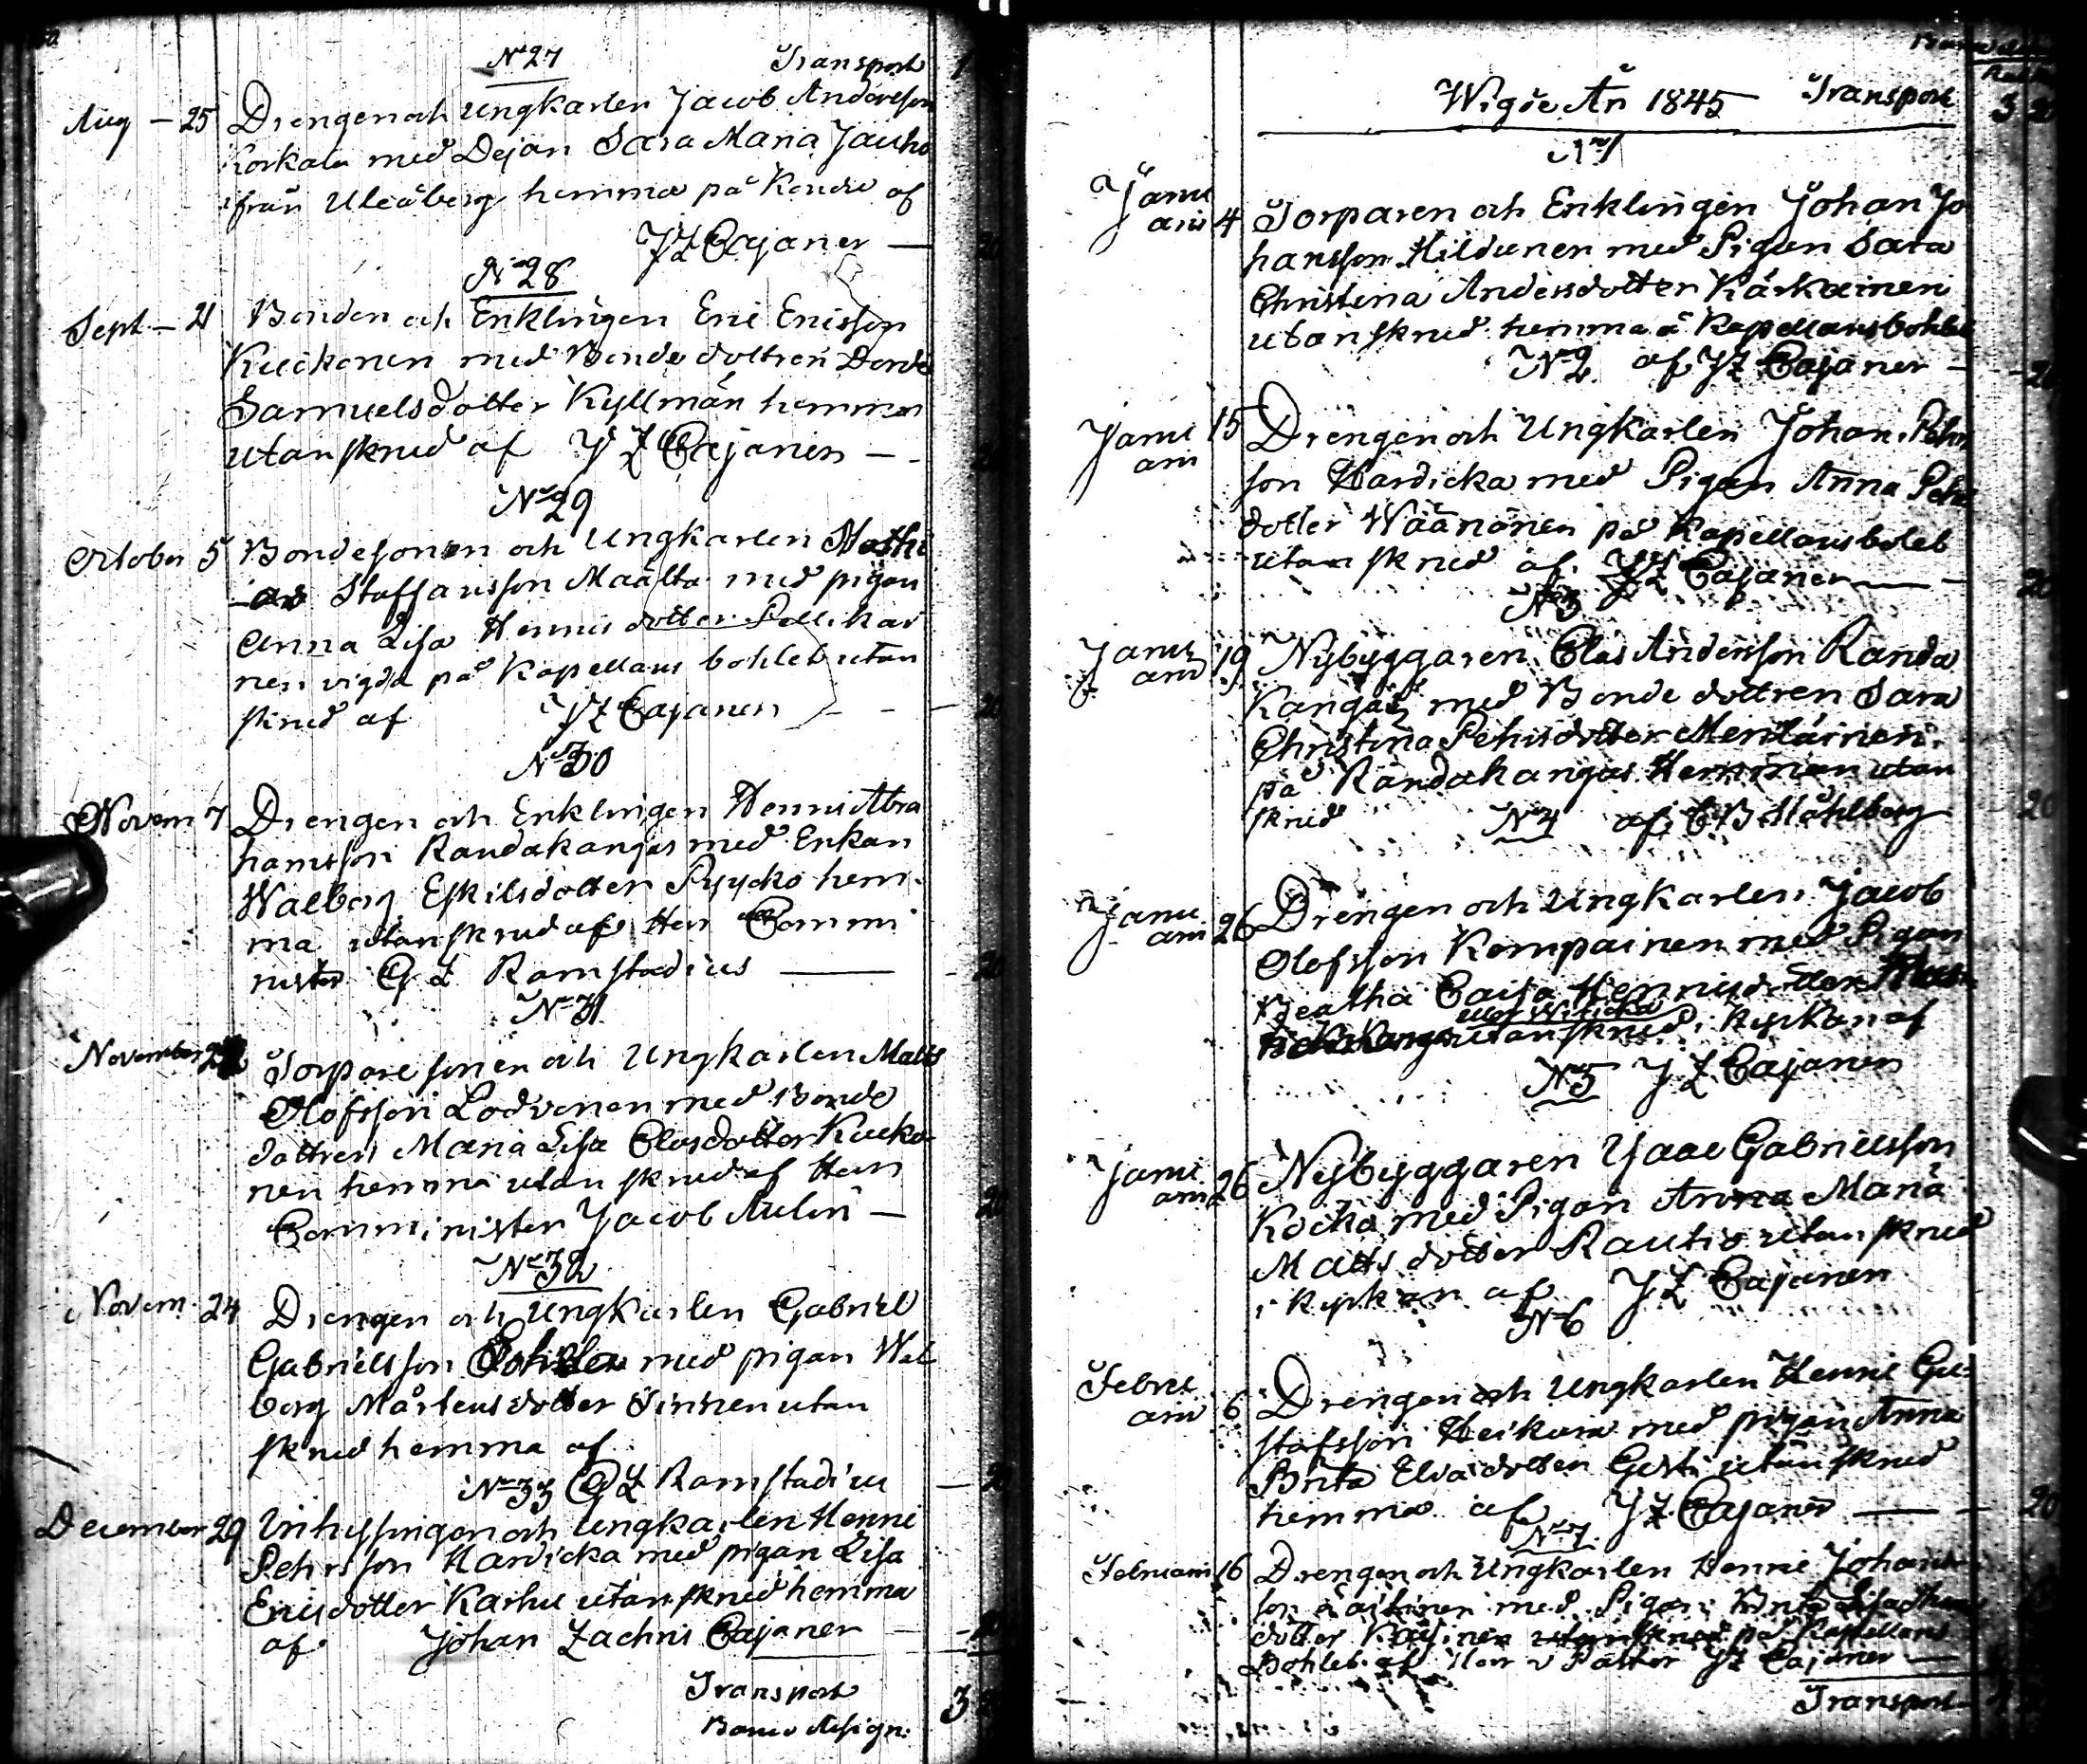 No 27 Transport 1
Aug – 25 Drengen och Ungkarlen Jacob Andersson
Korkala med Dejan Sara Maria Jauho
från Uleåborg hemma på Kondie af
J Z Cajaner — 20
No 28
Sept – 21 Bonden och Enklingen Eric Ericsson
Kuickonen med Bonde dottren Dorde
Samuelsdotter Kyllmän hemma
utan skrud af J Z Cajanen — - 20
No 29
October 5 Bondesonen och Ungkarlen Mathi
-as Staffansson Määttä med pigan
Anna Lisa Hennisdotter Pellikai
nen vigda på Kapellans bohlet utan
skrud af J Z Cajanen - - — 20
No 30
Novem 7 Drengen och Enklingen Henni Abra
hamsson Randakangas med Enkan
Walborg Eskilsdotter Pyycko hem-
ma utan skrud af Herr Commi
nister G L Ramstadius — - 20
No 31
November Torpare sonen och Ungkarlen Matts
Olofsson Lodvonen med Bonde
dottren Maria Lisa Clasdotter Kucko-
nen hemma utan skrud af Herr
Comminister Jacob Aulin — 20
No 32
Novem. 24 Drengen och Ungkarlen Gabriel
Gabrielsson med pigan Wal
borg Mårtensdotter Sirinen utan
skrud hemma af
No 33 G L Ramstadius — 20
December 29 Inhysingen och Ungkarlen Henric
Pehrsson Hardicka med pigan Lisa
Ericsdotter Karhu utan skrud hemma
af Johan Zachris Cajaner — - 20
Transport 3
Transport
Wigde År 1845 3 20
No 1
Janu
arii 4 Torparen och Enklingen Johan Jo
hansson Hildunen med Pigan Sara
Christina Andersdotter Kärkäinen
utan skrud hemma å Kapellansbohlet
No 2 af J Z Cajaner - - 20
Janu 15 Drengen och Ungkarlen Johan Pehrs
arii
son Hardicka med Pigan Anna Pehrs
dotter Wäänänen på Kapellansbolet
utan skrud af J Z Cajaner — - 20
No 3
Janu 19 Nybyggaren Clas Andersson Randa
arii
Kangas med Bonde dottren Sara
Christina Pehrsdotter Mentäinen
på Randakangas Hemman utan
skrud No 4 af C B Ståhlberg 20
Janu
arii 26 Drengen och Ungkarlen Jacob
Olofsson Kempainen med Pigan
Beatha Caisa Hennisdotter
utan skrud i Kyrkan af
No 5 J Z Cajanen
Janu
arii 26 Nybyggaren Isaac Gabrielsson
Kocko med Pigan Anna Maria
Matts dotter Rautio utan skrud
i Kyrkan af J Z Cajanen
No 6
Febru
arii 6 Drengen och Ungkarlen Henric Gu-
stafsson Heikura med pigan Anna
Brita Eliasdotter Gerti utan skrud
hemma af J Z Cajaner — - 20
No 7
Februarii 16 Drengen och Ungkarlen Henric Johans
son med Pigan Brita Lisa
dotter utan skrud på Kapellans
Bohlet af Herr v Pastor J Z Cajaner —
Transport